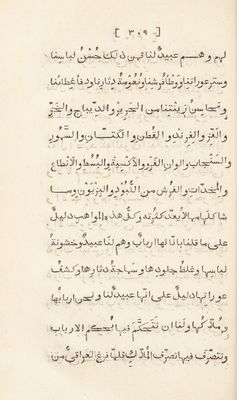 [ ٣٠٩ ]
لهم وهم عبيد لنا فمن ذلك حُسْنُ لباسنا
وستر عوراتنا ووطاء فرشنا ونُعومة دثارنا ودفء غطائنا
ومحاسن زينتنا من الحرير والديباج والخزّ
والقزّ والفرند والقطن والكتّان والسمّور
والسنجاب والوان الفرو والاكسية والبُسط والانطاع
والمخدّات والفرش من اللبود والبزيون وما
شاكلها مما لا يعدّ كثرته وكل هذه المواهب دليل
على ما قلنا بانا لها ارباب وهم لنا عبيد وخشونة
لباسها وغلظ جلودها وسماجة دثارها وكشف
عوراتها دليل على انها عبيد لنا ونحن اربابها
وملاكها ولنا ان نتحكّم فيها تحكم الارباب
ونتصرف فيها تصرف الملاك فلما فرغ العراقي من